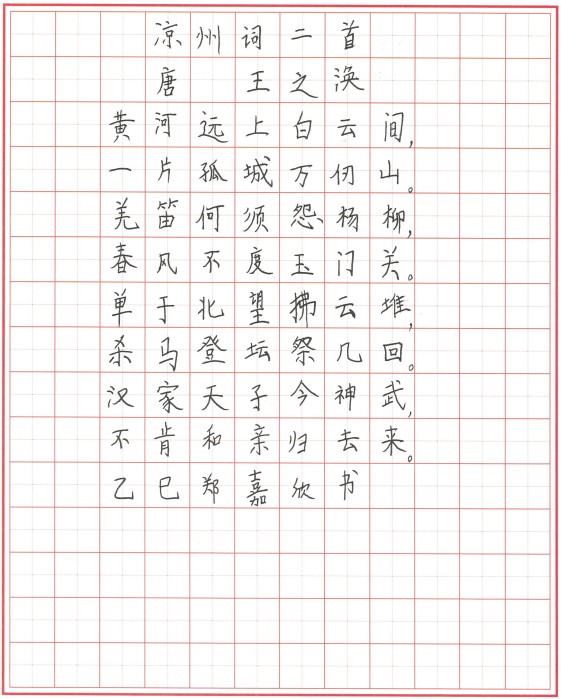 凉州词二首
唐 王之涣
黄河远上白云间，
一片孤城万仞山。
羌笛何须怨杨柳，
春风不度玉门关。
单于北望拂云堆，
杀马登坛祭几回。
汉家天子今神武，
不肯和亲归去来。
乙巳郑嘉欣书